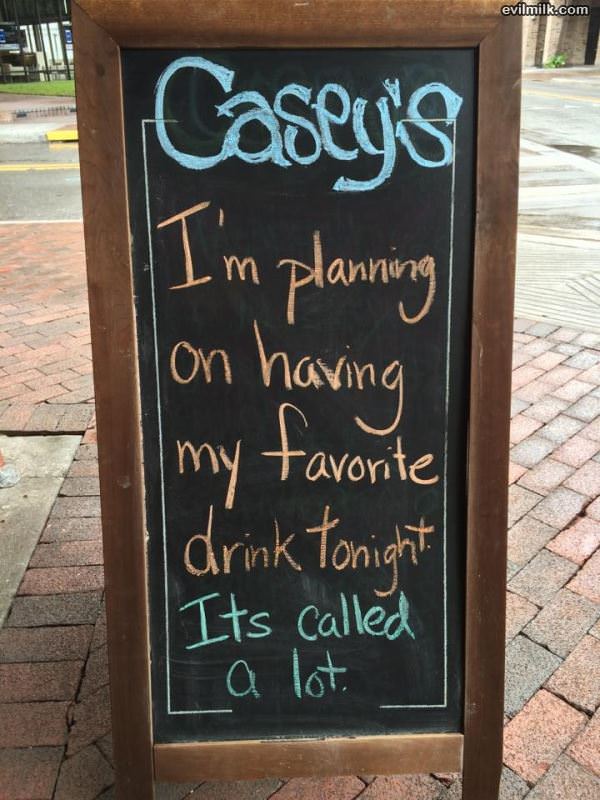 evilmilk.com
Casey's
I'm planning
on having
my favorite
drink tonight.
Its called
a lot.